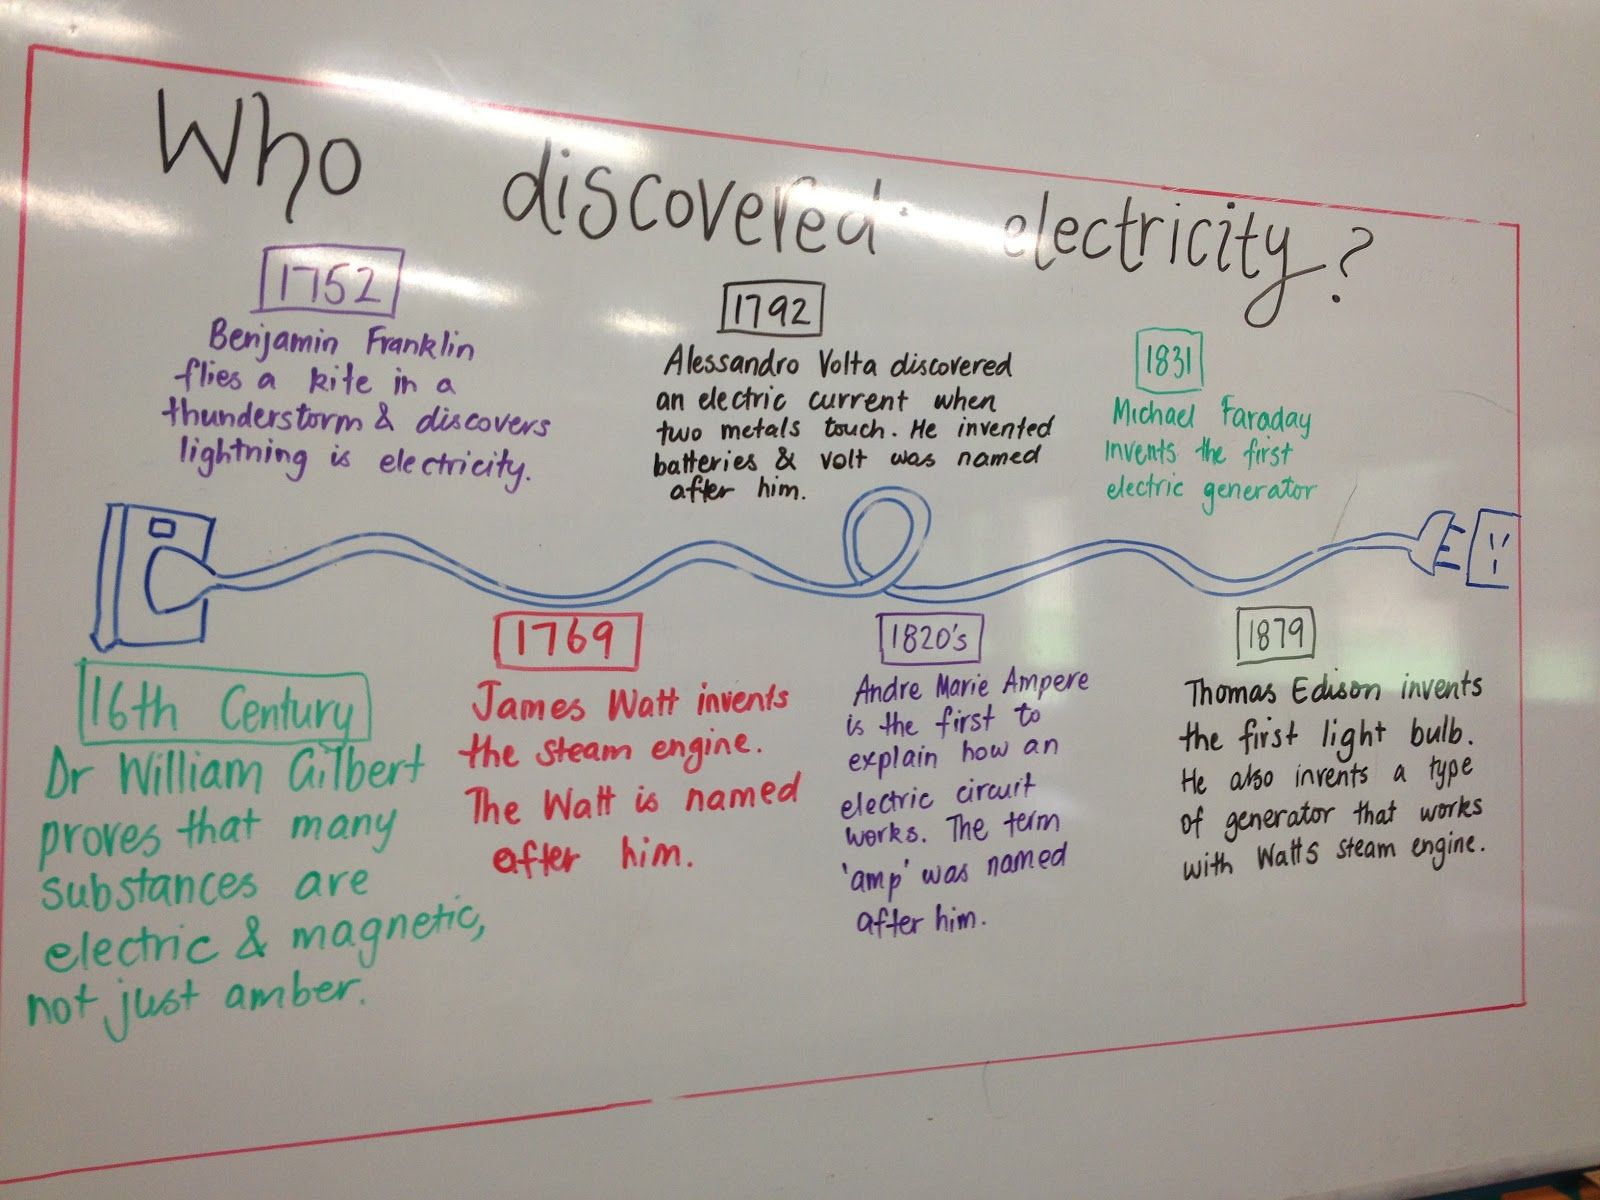 Who discovered electricity?
1752
Benjamin Franklin
flies a kite in a
thunderstorm & discovers
lightning is electricity.
1792
Alessandro Volta discovered
an electric current when
two metals touch. He invented
batteries & volt was named
after him.
1831
Michael Faraday
invents the first
electric generator
16th Century
Dr William Gilbert
proves that many
substances are
electric & magnetic,
not just amber.
1769
James Watt invents
the steam engine.
The Watt is named
after him.
1820's
Andre Marie Ampere
is the first to
explain how an
electric circuit
works. The term
'amp' was named
after him.
1879
Thomas Edison invents
the first light bulb.
He also invents a type
of generator that works
with Watts steam engine.